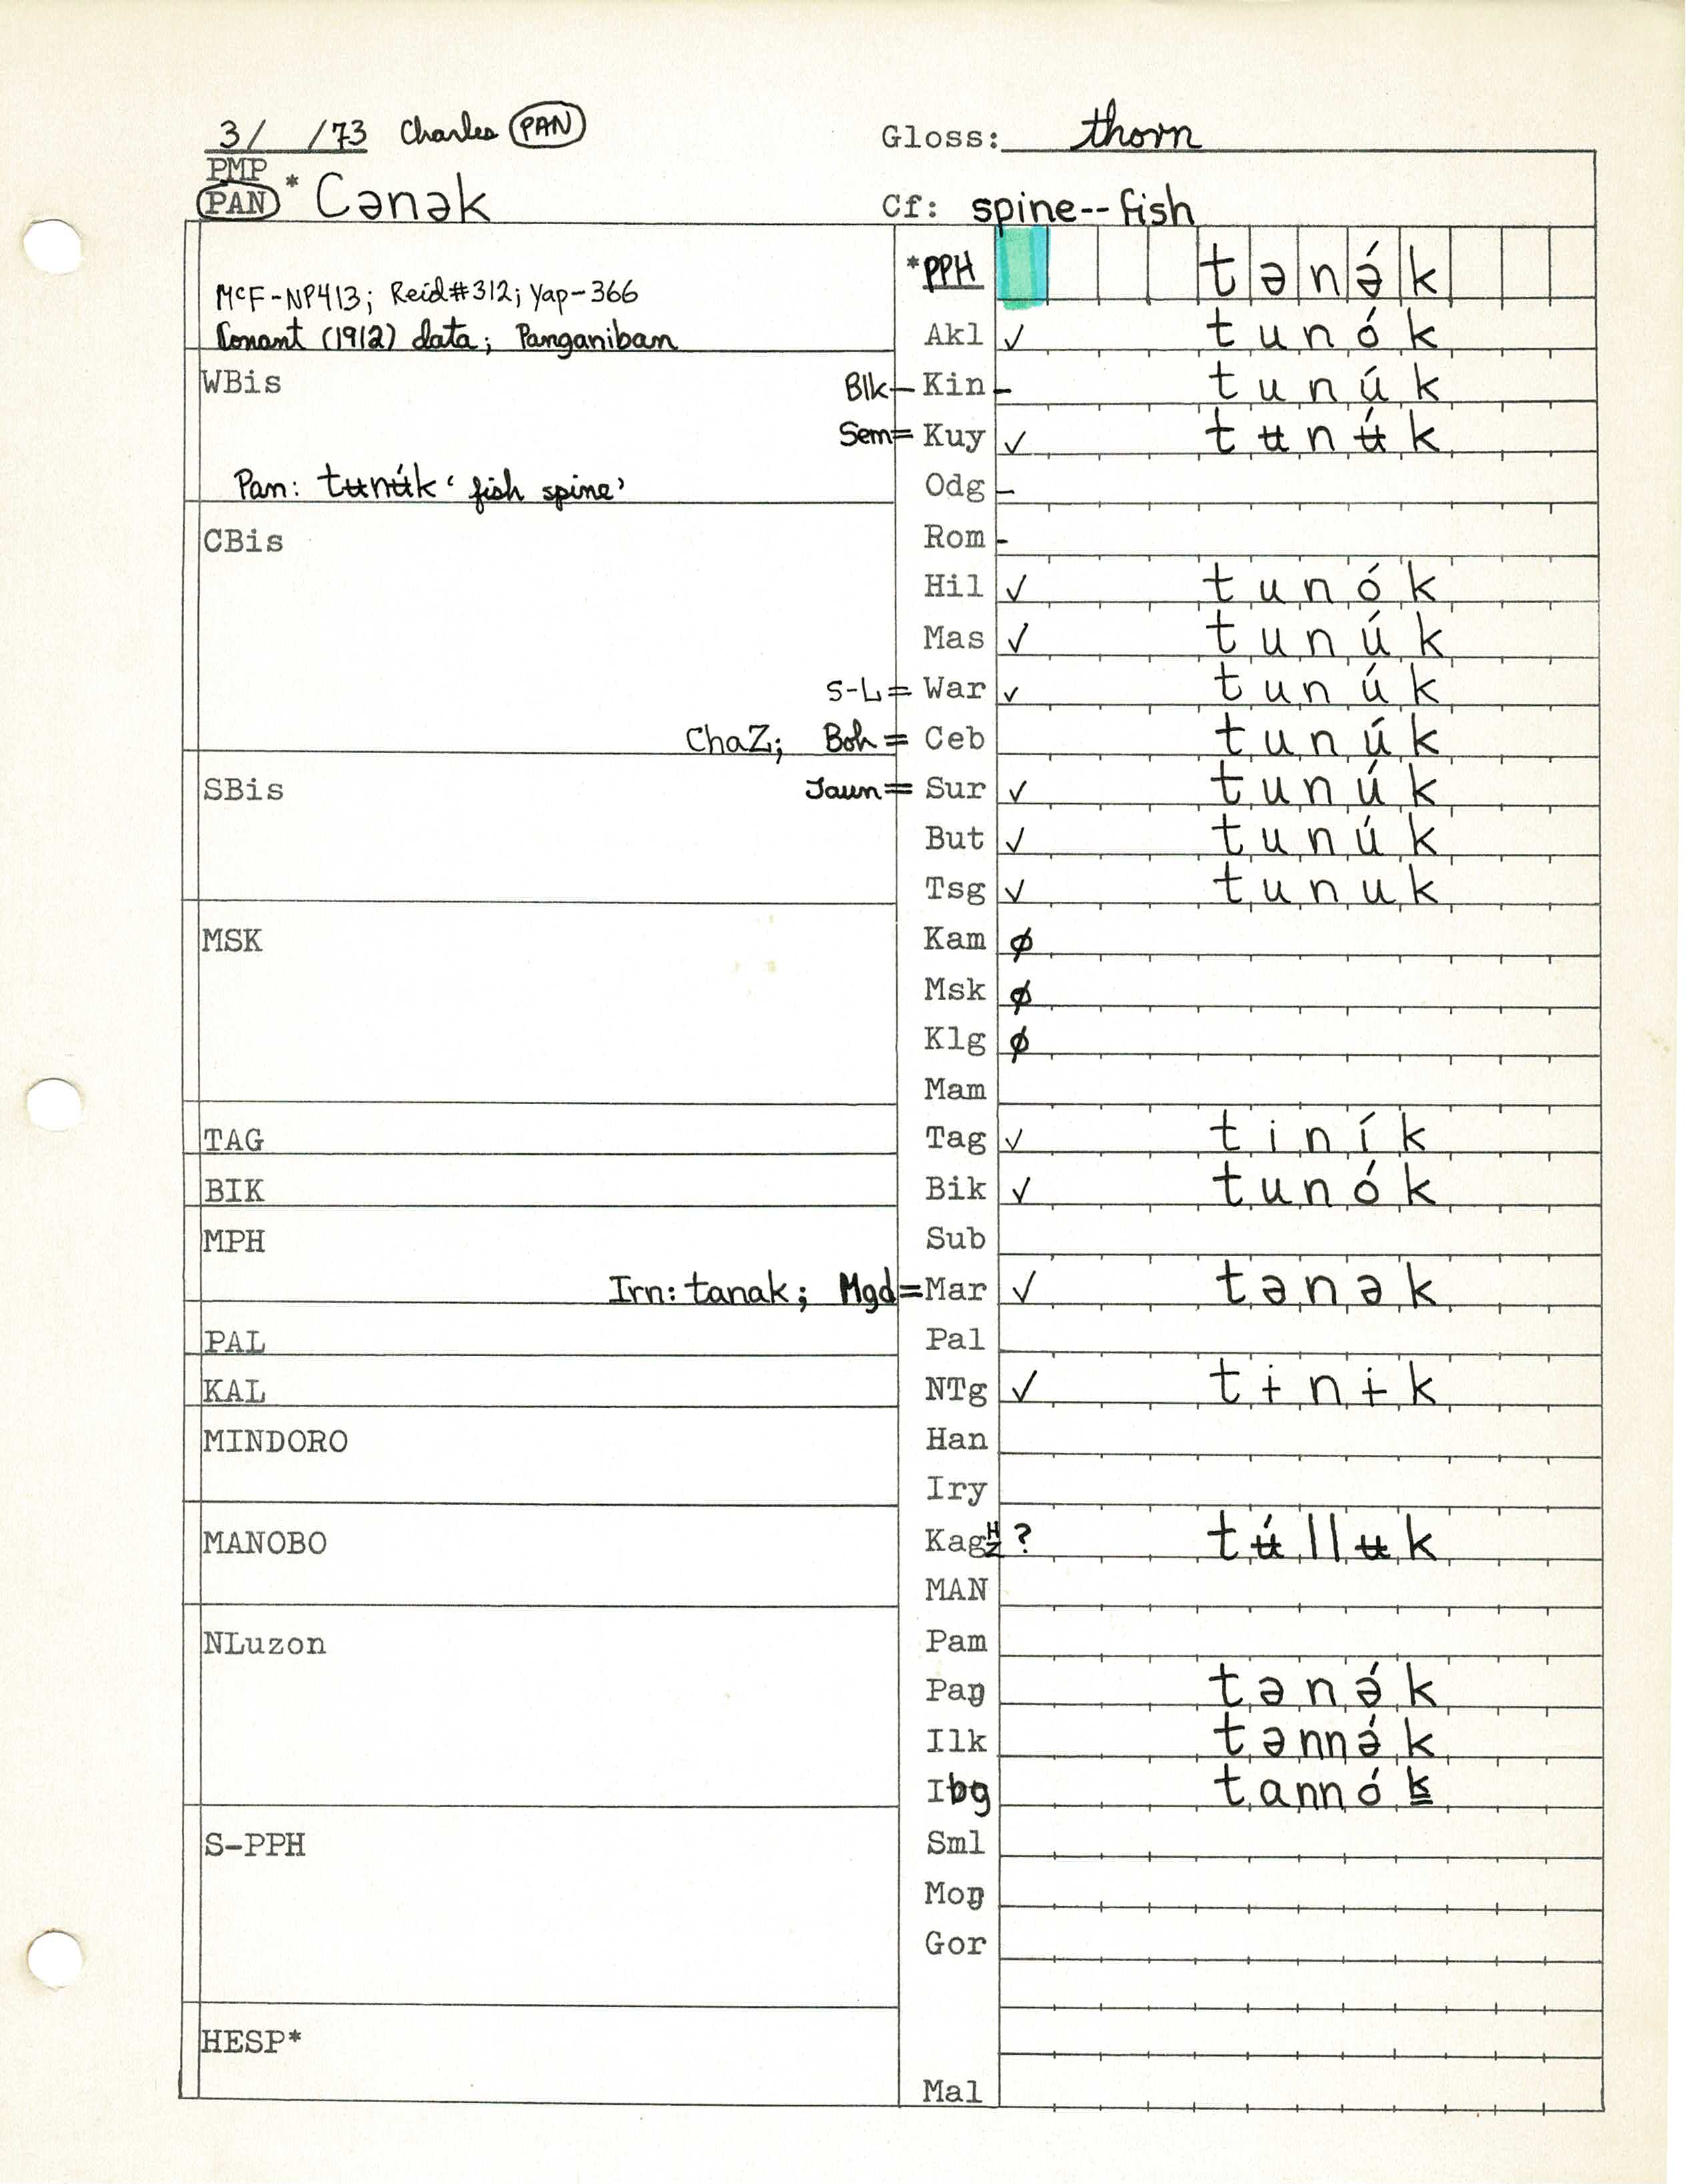 3/ /73 Charles PAN Gloss: thorn
PMP
PAN * Cənək Cf: spine--fish
*PPH tənə́k
McF-NP413; Reid#312; Yap-366
Conant (1912) data; Panganiban Akl ✓ tunók
WBis Blk- Kin - tunúk
Sem= Kuy ✓ tʉnʉ́k
Pan: tʉnʉ́k 'fish spine' Odg -
CBis Rom -
Hil ✓ tunók
Mas ✓ tunúk
S-L= War ✓ tunúk
ChaZ; Boh= Ceb tunúk
SBis Jaun= Sur ✓ tunúk
But ✓ tunúk
Tsg ✓ tunuk
MSK Kam ∅
Msk ∅
Klg ∅
Mam
TAG Tag ✓ tiník
BIK Bik ✓ tunók
MPH Sub
Irn: tanak; Mgd= Mar ✓ tənək
PAL Pal
KAL NTg ✓ tɨnɨk
MINDORO Han
Iry
MANOBO Kag H Z ? tʉ́llʉk
MAN
NLuzon Pam
Paŋ tənə́k
Ilk tənnə́k
Ibg tannók
S-PPH Sml
Moŋ
Gor
HESP*
Mal